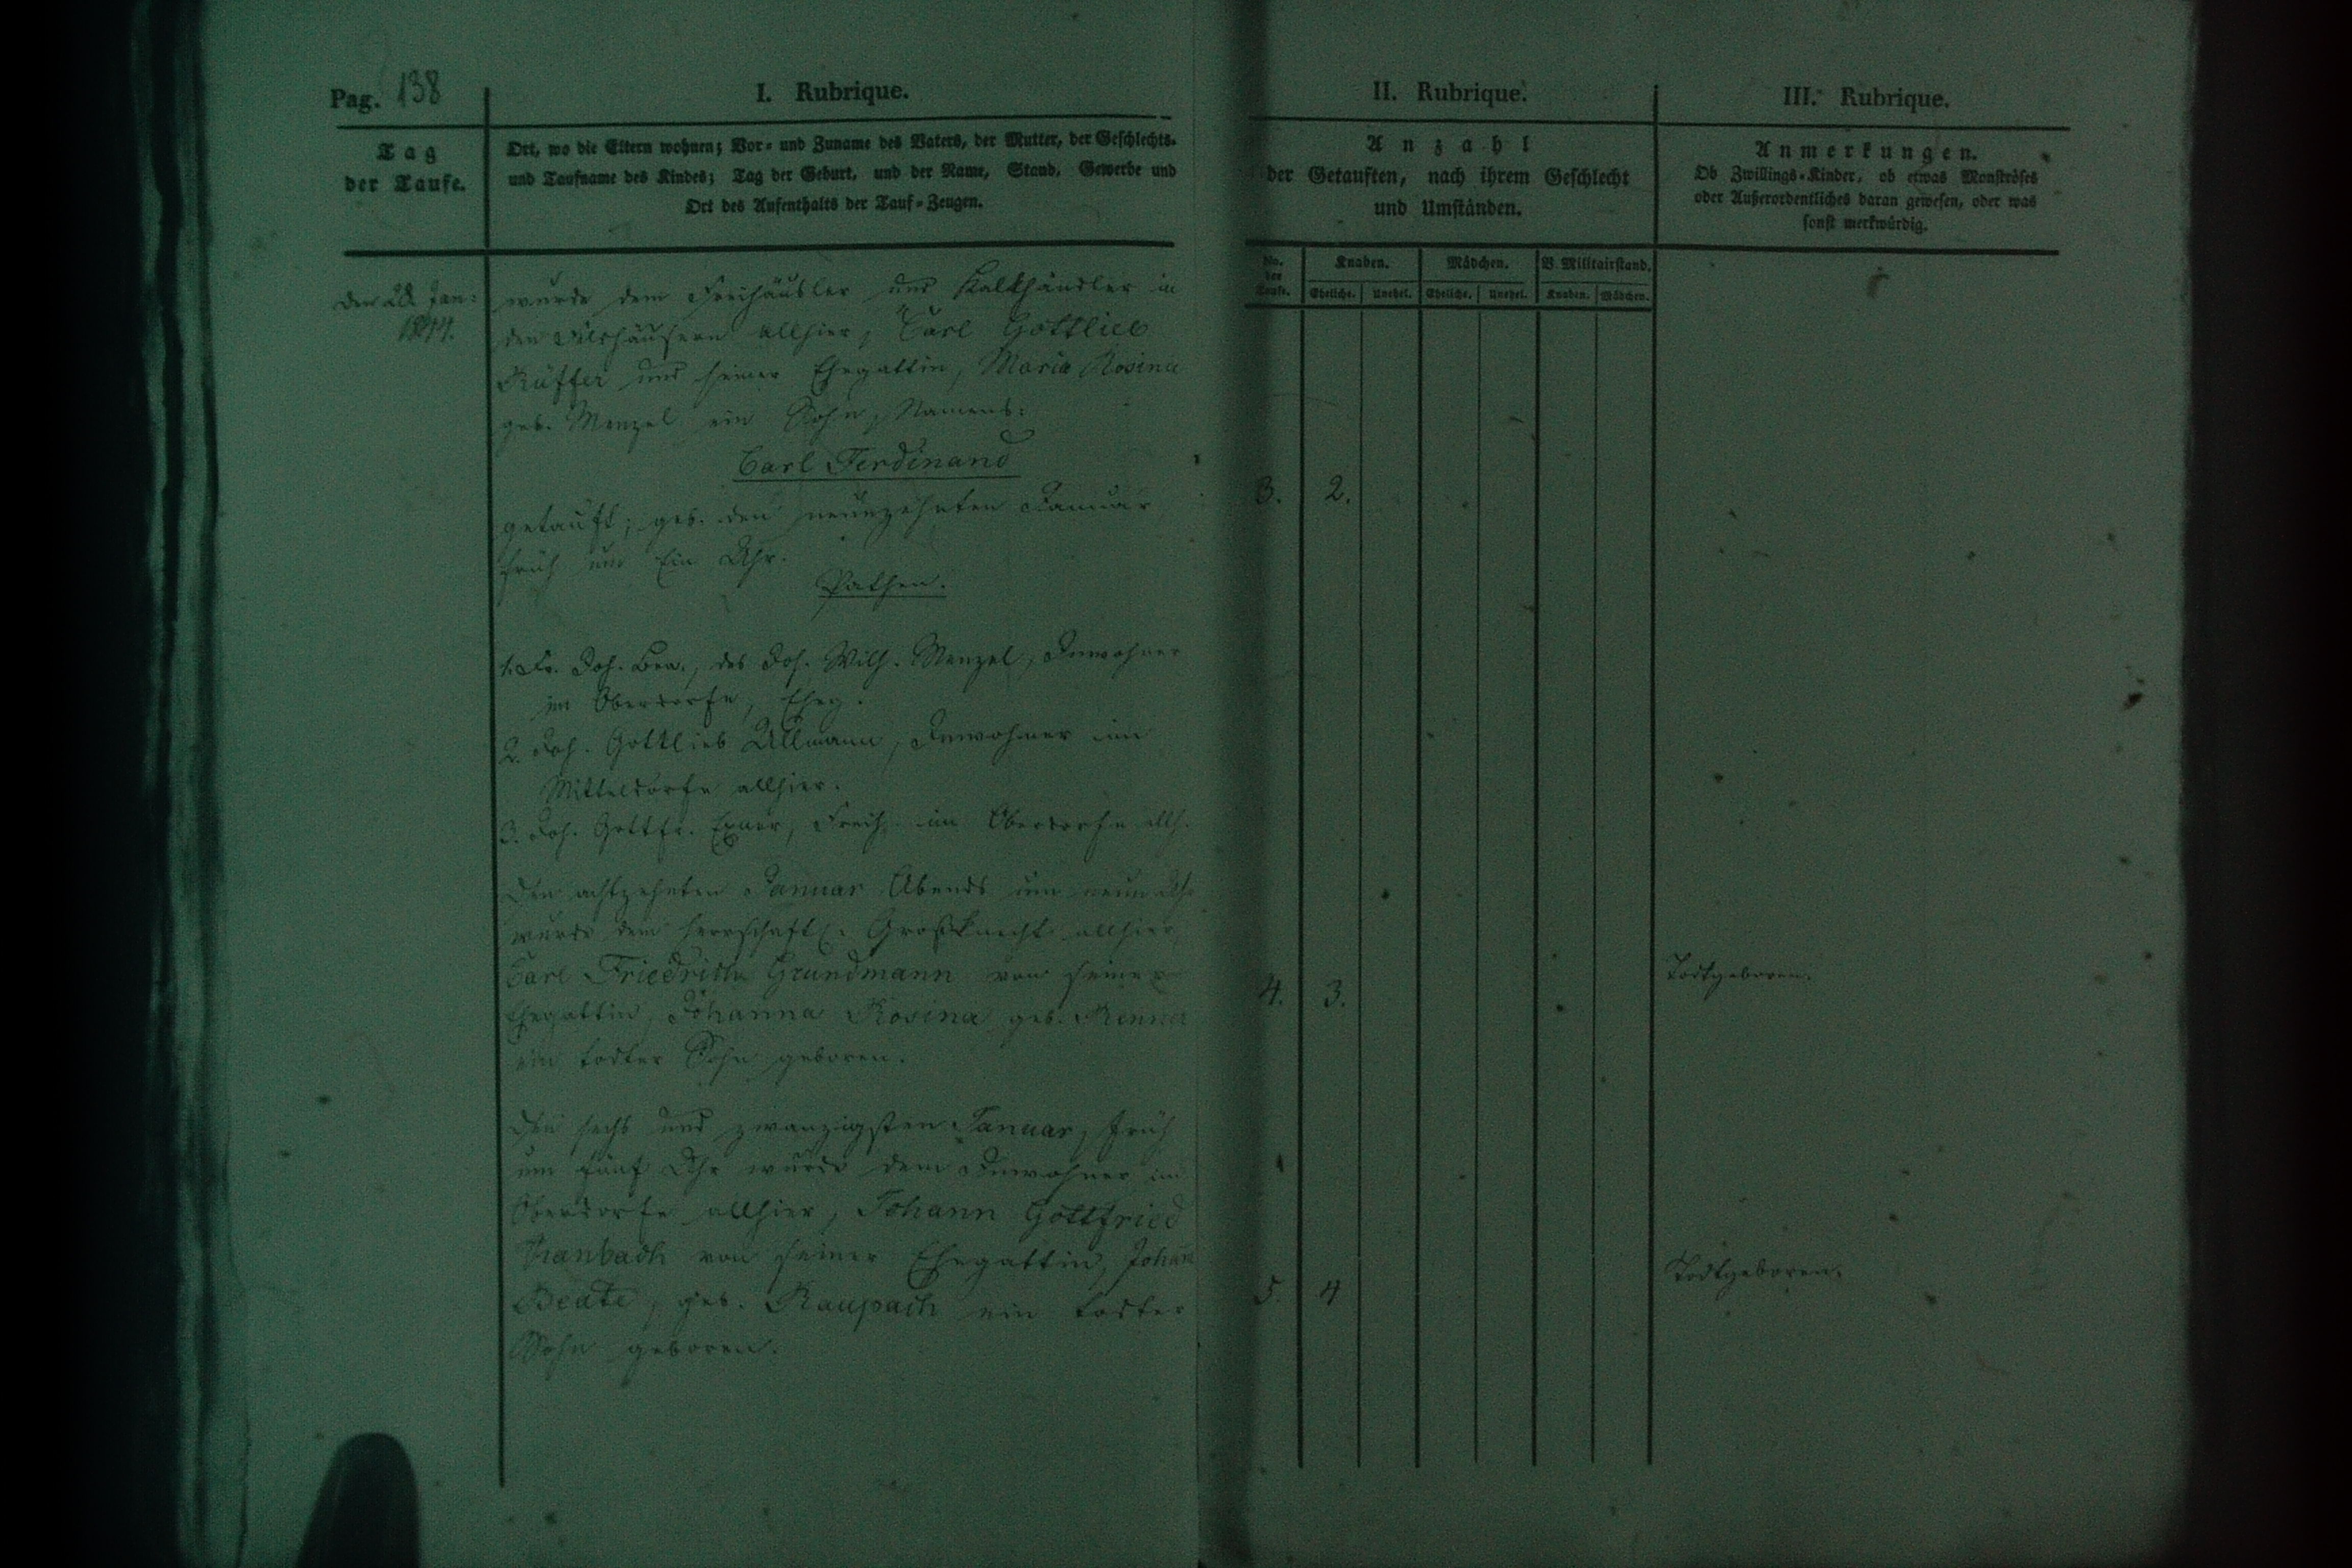 Pag. 138
I. Rubrique.
Tag
der Taufe.
Ort, wo die Eltern wohnen; Vor- und Zuname des Vaters, der Mutter, der Geschlechts-
und Taufname des Kindes; Tag der Geburt, und der Name, Stand, Gewerbe und
Ort des Aufenthalts der Tauf-Zeugen.
den 28. Jan:
1844.
wurde dem Freihäusler und Kalkhändler in
den häusern allhier, Carl Gottlieb
Küffer und seiner Ehegattin, Maria Rosina
geb. Menzel ein Sohn, Namens:
Carl Ferdinand
getauft; geb. den neunzehnten Januar
früh um Ein Uhr.
Pathen.
1. Fr. Joh. Bea., des Joh. Wilh. Menzel, Inwohner
im Oberdorfe, Eheg.
2. Joh. Gottlieb Ullmann, Inwohner im
Mitteldorfe allhier.
3. Joh. Gottfr. Exner, Freih. im Oberdorfe allh.
Den achtzehnten Januar Abends um neun Uhr
wurde dem herrschaftl. Großknecht allhier
Carl Friedrich Grundmann von seiner
Ehegattin, Johanna Rosina geb. Renner
ein todter Sohn geboren.
Den sechs und zwanzigsten Januar, früh
um fünf Uhr wurde dem Inwohner im
Oberdorfe allhier, Johann Gottfried
von seiner Ehegattin, Johan
Beate, geb. Raupach ein todter
Sohn geboren.
II. Rubrique.
Anzahl
der Getauften, nach ihrem Geschlecht
und Umständen.
No.
der
Taufe.
Knaben. Mädchen. V. Militairstand.
Eheliche. Unehel. Eheliche. Unehel. Knaben. Mädchen.
3. 2.
4. 3.
5. 4
III. Rubrique.
Anmerkungen.
Ob Zwillings-Kinder, ob etwas Monströses
oder Außerordentliches daran gewesen, oder was
sonst merkwürdig.
Todtgeboren.
Todtgeboren.